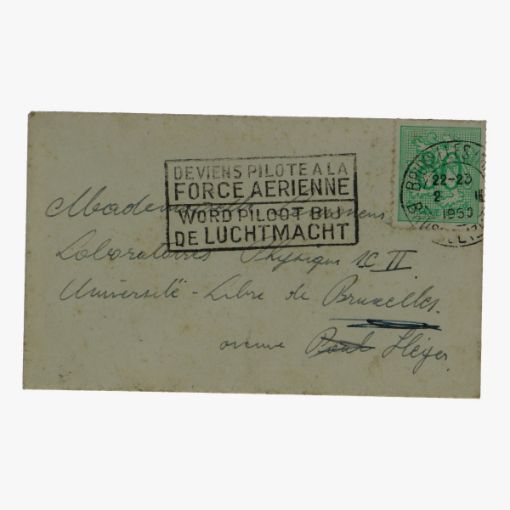 DEVIENS PILOTE A LA
FORCE AERIENNE
WORD PILOOT BIJ
DE LUCHTMACHT
BRUXELLES
22-23
2
1960
BRUSSEL
20
Mademoiselle
Laboratoires Physique IC II
Université - Libre de Bruxelles.
avenue Paul Héger